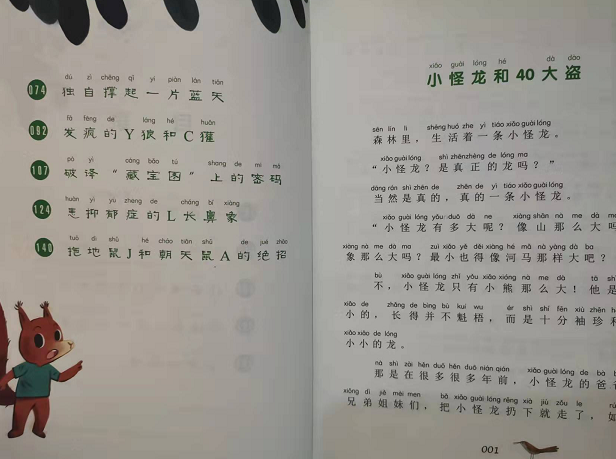 dú zì chēng qǐ yí piàn lán tiān
074 独自撑起一片蓝天
fā fēng de láng hé huān
092 发疯的Y狼和C獾
pò yì cáng bǎo tú shang de mì mǎ
107 破译“藏宝图”上的密码
huàn yì yù zhèng de cháng bí xiàng
124 患抑郁症的L长鼻象
tuō dì shǔ hé cháo tiān shǔ de jué zhāo
140 拖地鼠J和朝天鼠A的绝招
xiǎo guài lóng hé dà dào
小怪龙和40大盗
sēn lín lǐ shēng huó zhe yì tiáo xiǎo guài lóng
森林里，生活着一条小怪龙。
xiǎo guài lóng shì zhēn zhèng de lóng ma
“小怪龙？是真正的龙吗？”
dāng rán shì zhēn de zhēn de yì tiáo xiǎo guài lóng
当然是真的，真的一条小怪龙。
xiǎo guài lóng yǒu duō dà ne xiàng shān nà me dà ma
“小怪龙有多大呢？像山那么大吗
xiàng nà me dà ma zuì xiǎo yě děi xiàng hé mǎ nà yàng dà ba
象那么大吗？最小也得像河马那样大吧？
bù xiǎo guài lóng zhǐ yǒu xiǎo xióng nà me dà tā shì
不，小怪龙只有小熊那么大！他是
xiǎo de zhǎng de bìng bù kuí wu ér shì shí fēn xiù zhēn hé
小的，长得并不魁梧，而是十分袖珍和
xiǎo xiǎo de lóng
小小的龙。
nà shì zài hěn duō hěn duō nián qián xiǎo guài lóng de bà
那是在很多很多年前，小怪龙的爸
xiōng dì jiě mèi men bǎ xiǎo guài lóng rēng xià jiù zǒu le
兄弟姐妹们，把小怪龙扔下就走了，如
001